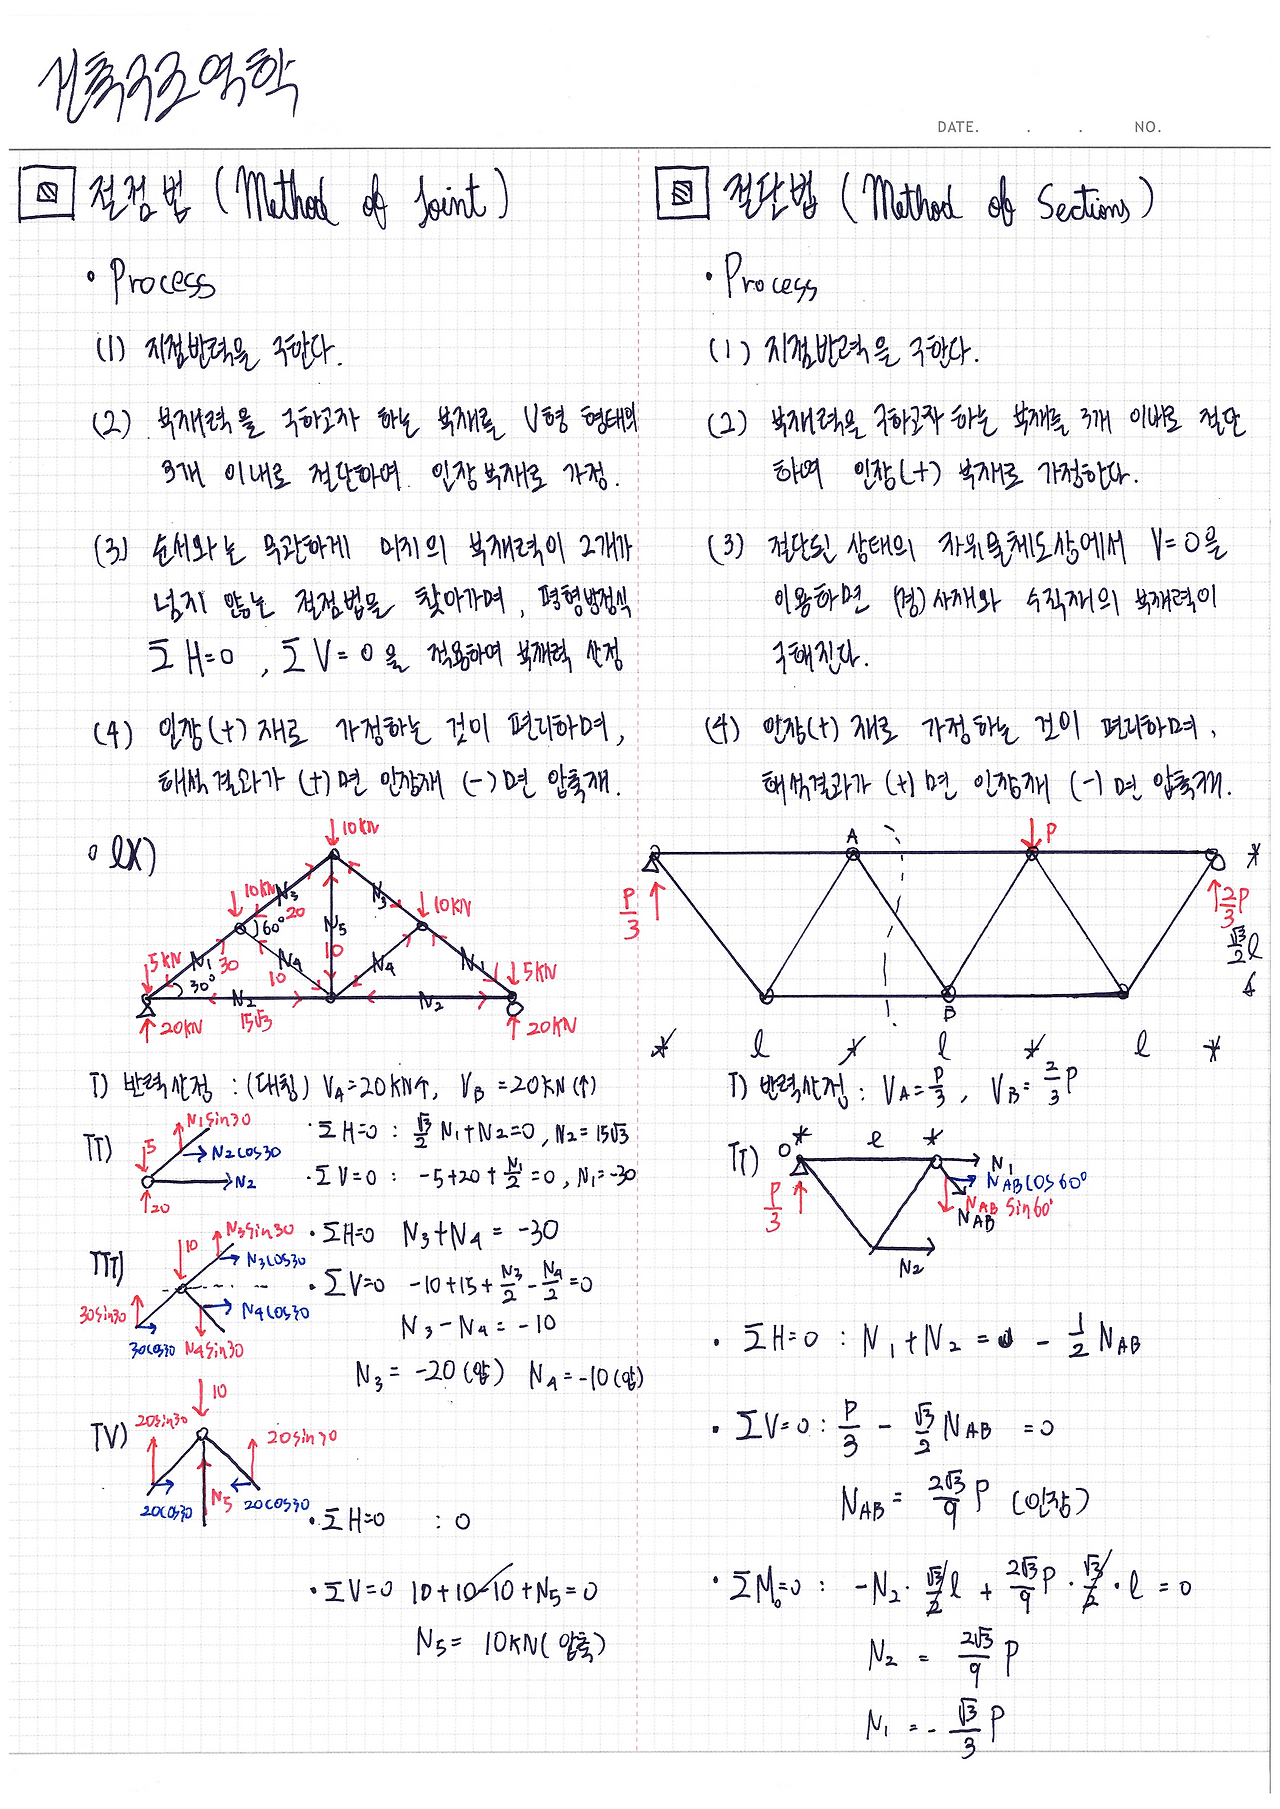 건축구조역학
DATE. . . NO.
절점법 (Method of Joint)
• Process
(1) 지점반력을 구한다.
(2) 부재력을 구하고자 하는 부재를 V형 형태의
3개 이내로 절단하여 인장부재로 가정.
(3) 순서와는 무관하게 미지의 부재력이 2개가
넘지 않는 절점법을 찾아가며, 평형방정식
ΣH=0 , ΣV=0을 적용하여 부재력 산정
(4) 인장(+)재로 가정하는 것이 편리하며,
해석결과가 (+)면 인장재 (-)면 압축재.
ex)
10KN
10KN N3 N3 10KN
20
60° N5
5KN N1 30 N4 10 N4 N1 5KN
10
30° N2 N2
20KN 15√3 20KN
I) 반력산정 : (대칭) VA=20KN↑, VB=20KN(↑)
II) 5 N1sin30
N2cos30
N2
20
• ΣH=0 : √3/2 N1+N2=0, N2=15√3
• ΣV=0 : -5+20+N1/2=0, N1=-30
III) 10 N3sin30
N3cos30
30sin30 N4cos30
30cos30 N4sin30
• ΣH=0 N3+N4=-30
• ΣV=0 -10+15+N3/2-N4/2=0
N3-N4=-10
N3=-20(압) N4=-10(압)
IV) 10
20sin30 20sin30
20cos30 N5 20cos30
• ΣH=0 : 0
• ΣV=0 10+10-10+N5=0
N5= 10KN(압축)
절단법 (Method of Sections)
• Process
(1) 지점반력을 구한다.
(2) 부재력을 구하고자 하는 부재를 3개 이내로 절단
하여 인장(+) 부재로 가정한다.
(3) 절단된 상태의 자유물체도상에서 V=0을
이용하면 (경)사재와 수직재의 부재력이
구해진다.
(4) 인장(+)재로 가정하는 것이 편리하며,
해석결과가 (+)면 인장재 (-)면 압축재.
A P
P/3 2/3P
√3/2 l
B
l l l
I) 반력산정 : VA=P/3, VB=2/3P
II) O l N1
NABcos60°
P/3 NAB sin60°
NAB
N2
• ΣH=0 : N1+N2=0 - 1/2 NAB
• ΣV=0 : P/3 - √3/2 NAB =0
NAB = 2√3/9 P (인장)
• ΣMo=0 : -N2·√3/2 l + 2√3/9 P·√3/2·l =0
N2 = 2√3/9 P
N1 = -√3/3 P